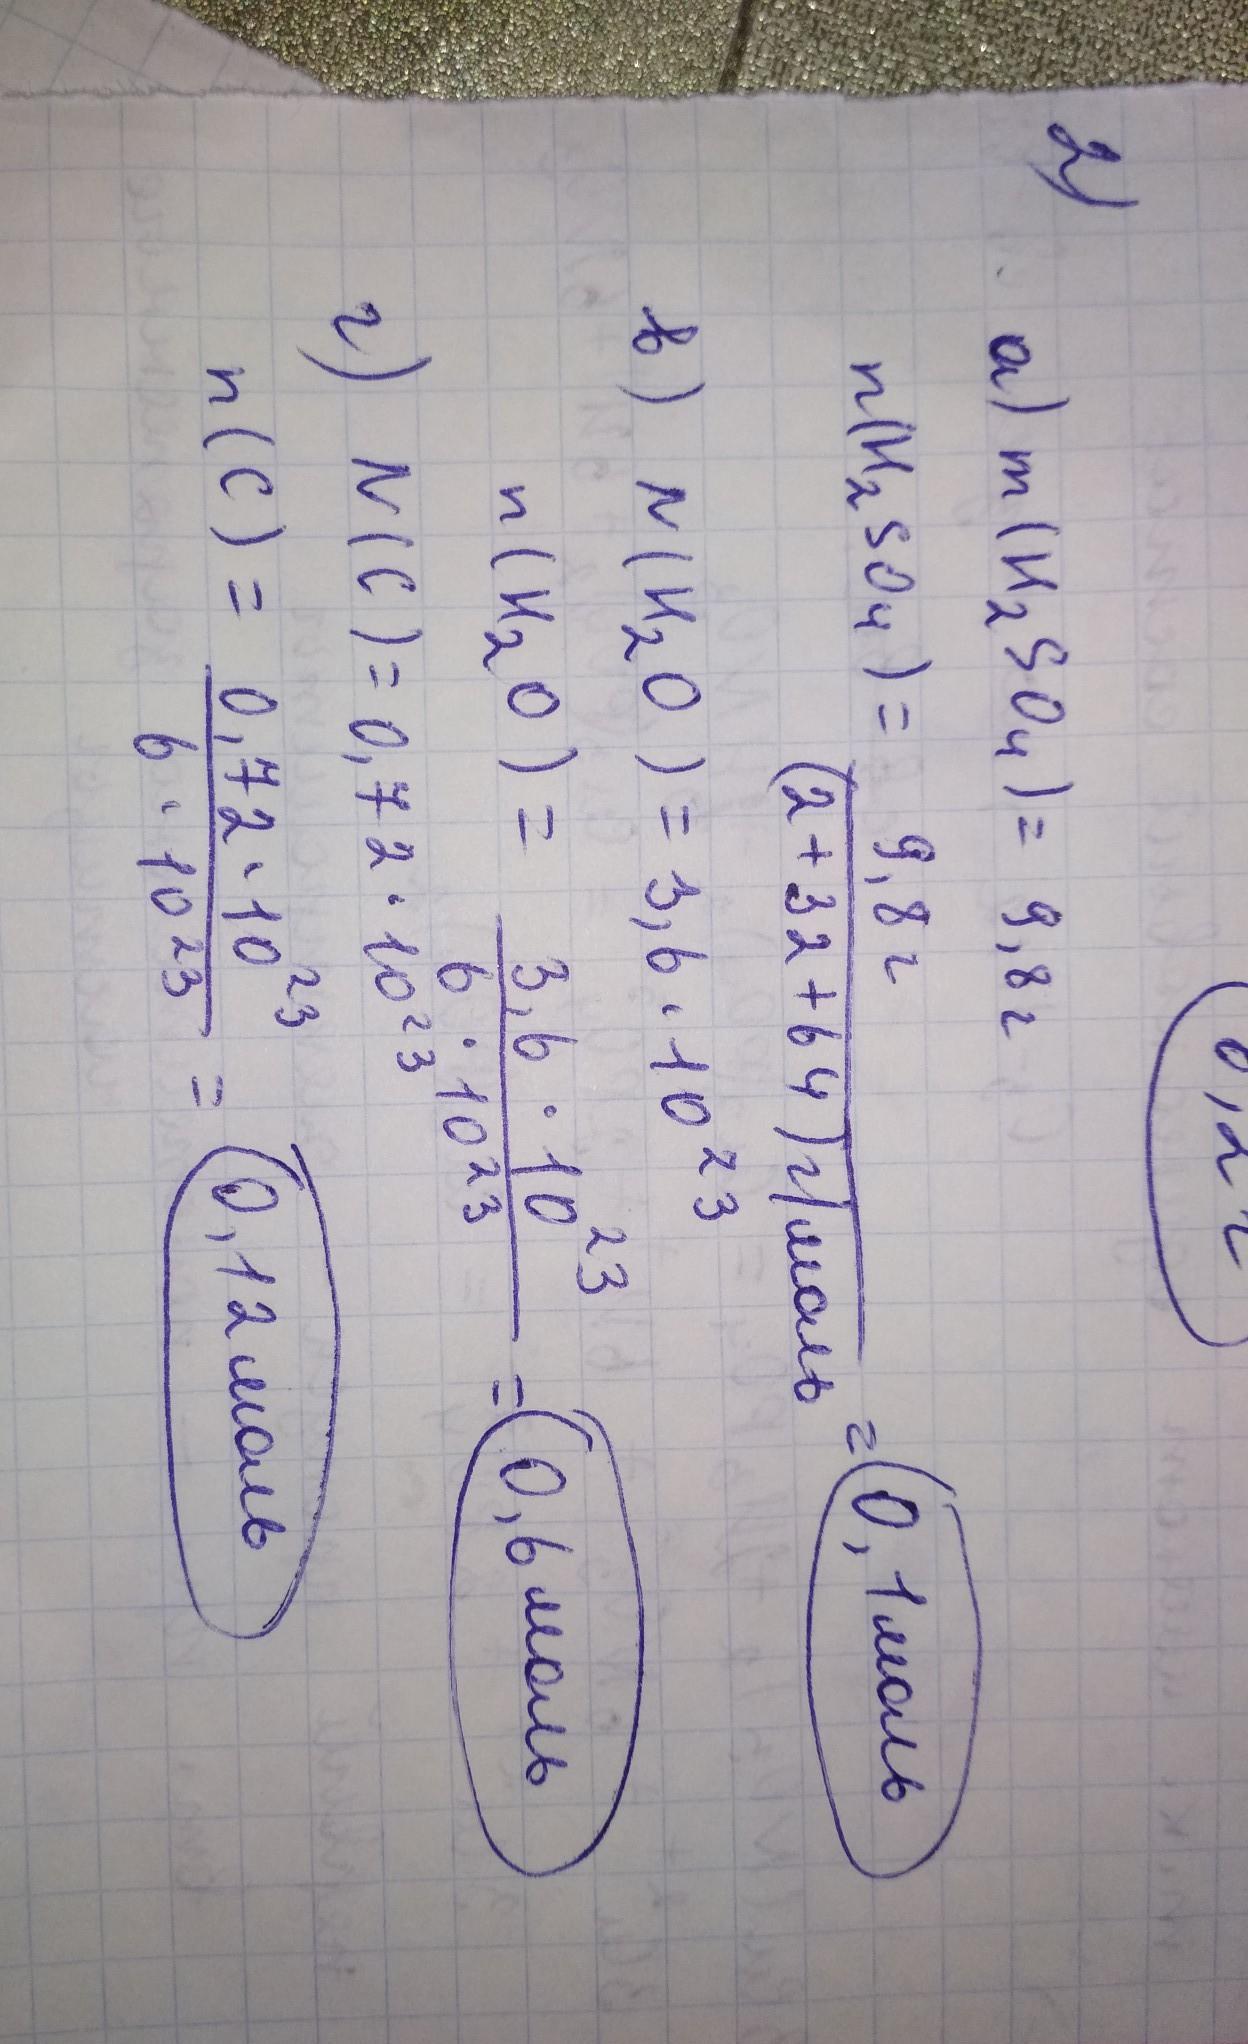 0,2 г
2)
а) m(H₂SO₄) = 9,8 г
n(H₂SO₄) = 9,8 г / (2+32+64) г/моль = 0,1 моль
в) N(H₂O) = 3,6 · 10²³
n(H₂O) = 3,6 · 10²³ / 6 · 10²³ = 0,6 моль
г) N(C) = 0,72 · 10²³
n(C) = 0,72 · 10²³ / 6 · 10²³ = 0,12 моль